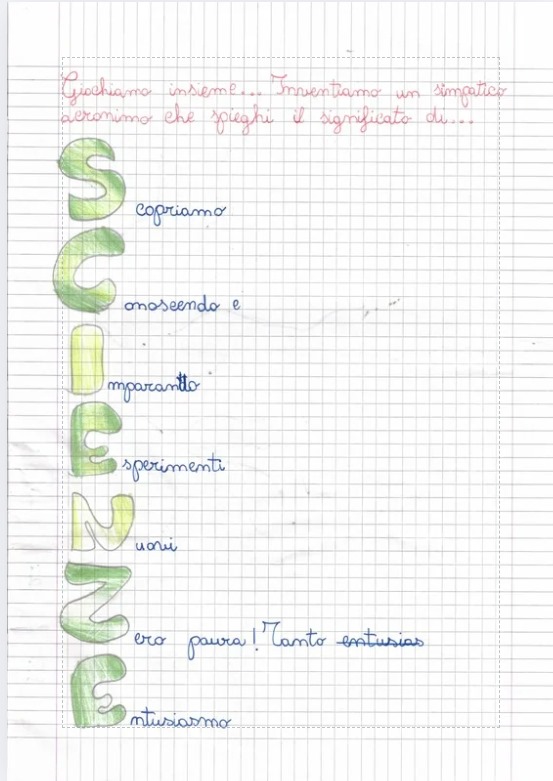 Giochiamo insieme... Inventiamo un simpatico
acronimo che spieghi il significato di...
Scopriamo
Conoscendo e
Imparando
Esperimenti
Nuovi
Zero paura! Tanto entusias
Entusiasmo